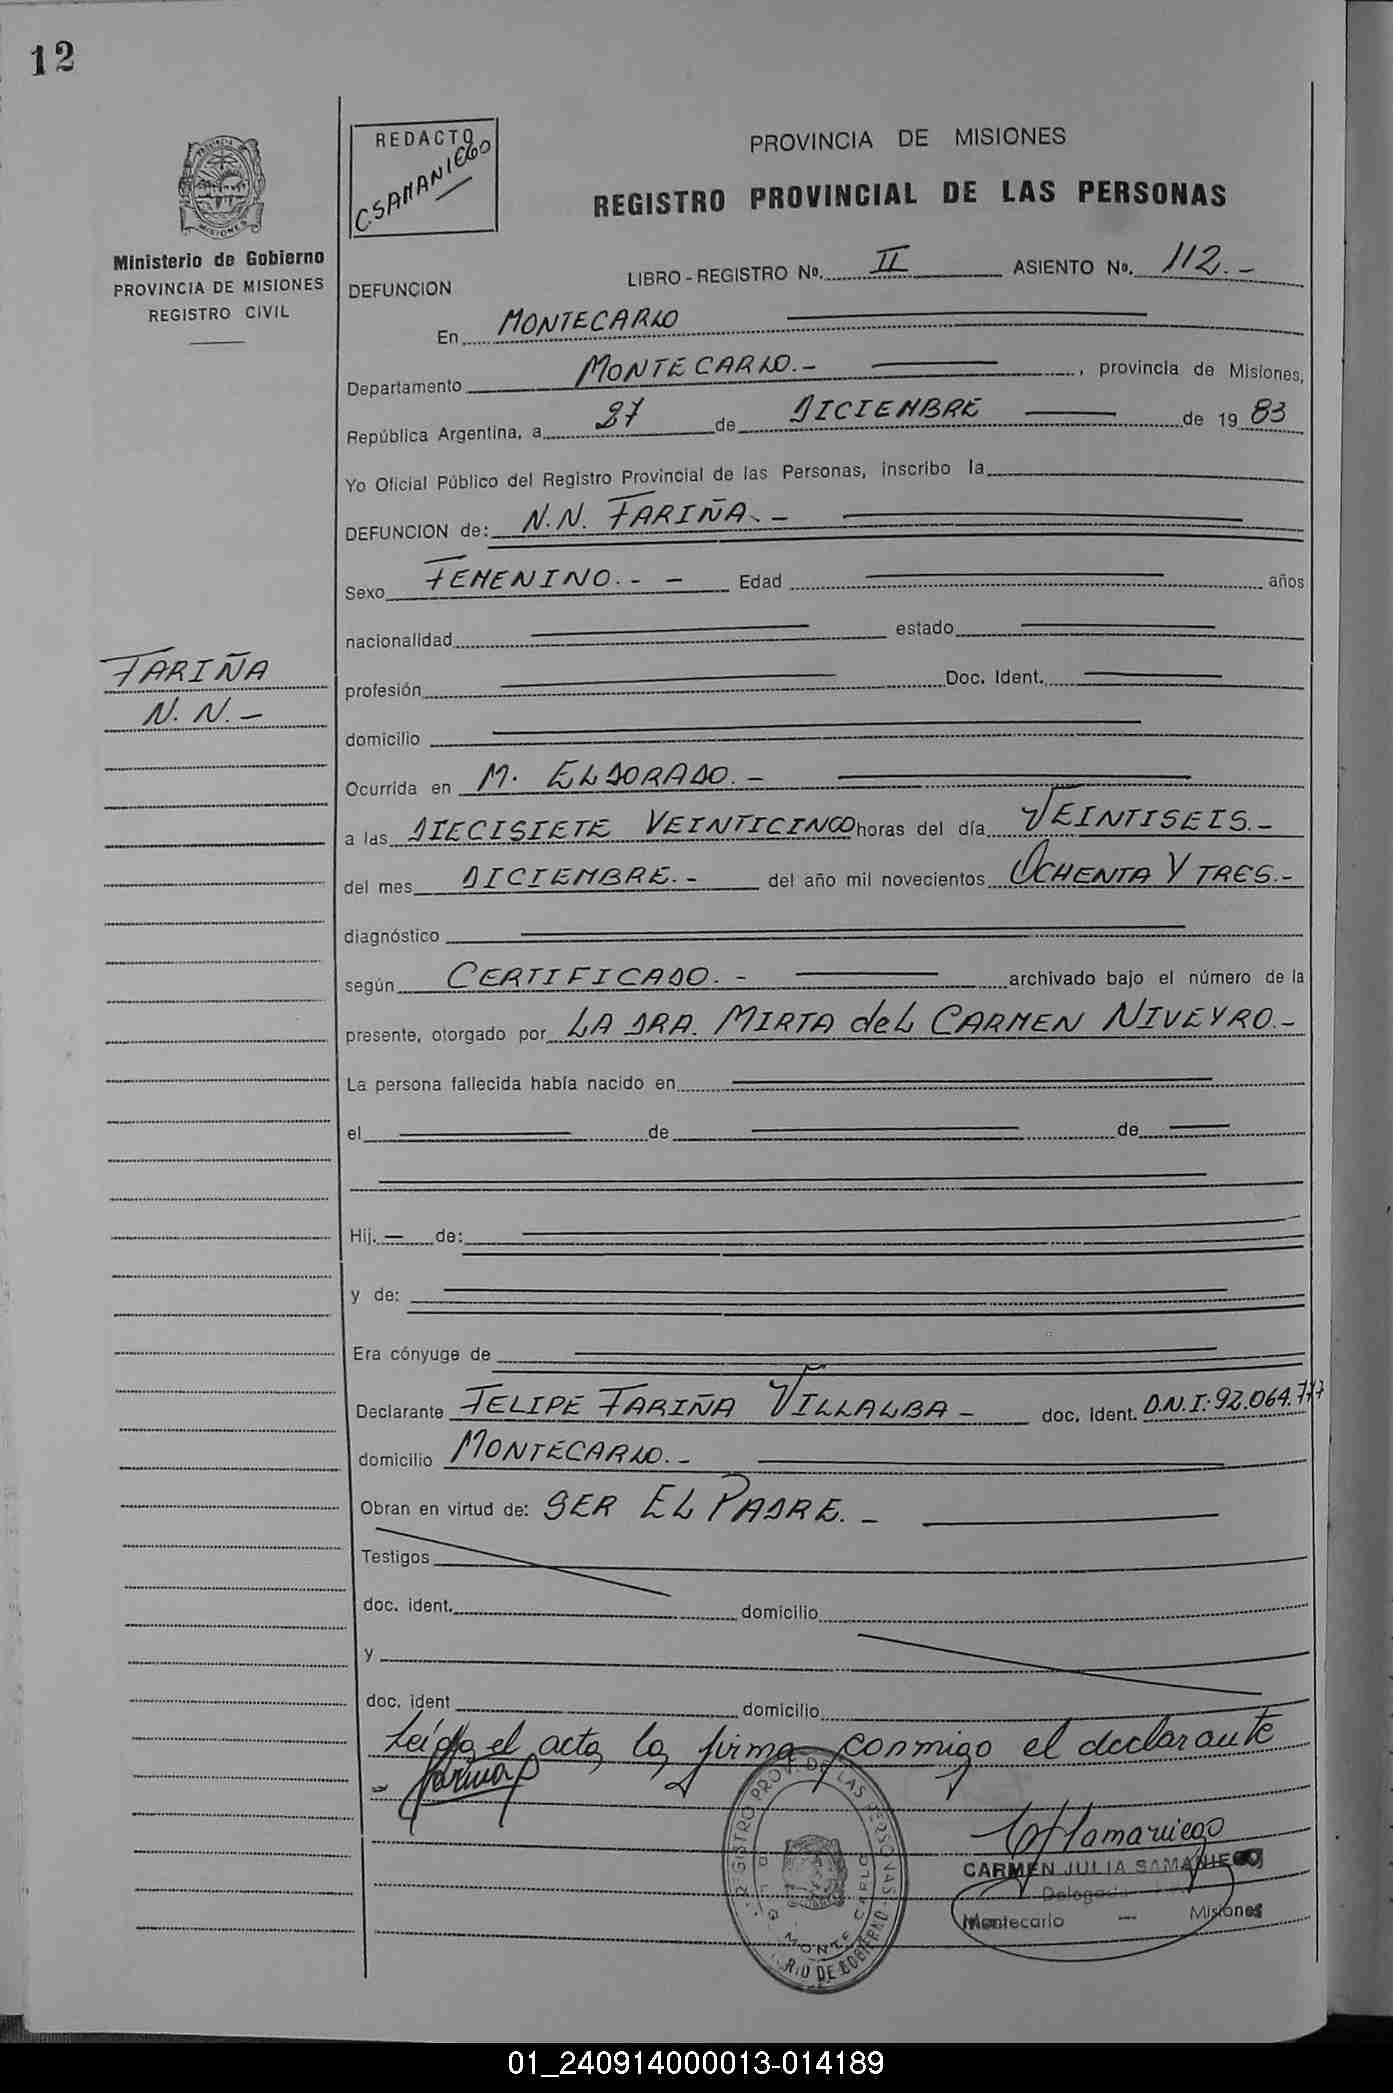 12
REDACTO
C. SAMANIEGO
PROVINCIA DE MISIONES
REGISTRO PROVINCIAL DE LAS PERSONAS
Ministerio de Gobierno
PROVINCIA DE MISIONES
REGISTRO CIVIL
LIBRO - REGISTRO Nº. II ASIENTO Nº. 112.-
DEFUNCION
En MONTECARLO
Departamento MONTECARLO.- , provincia de Misiones,
República Argentina, a 27 de DICIEMBRE de 19 83
Yo Oficial Público del Registro Provincial de las Personas, inscribo la
DEFUNCION de: N.N. FARIÑA.-
Sexo FEMENINO.- - Edad años
nacionalidad estado
FARIÑA
N. N.-
profesión Doc. Ident.
domicilio
Ocurrida en M. ELDORADO.-
a las DIECISIETE VEINTICINCO horas del día VEINTISEIS.-
del mes DICIEMBRE.- del año mil novecientos OCHENTA Y TRES.-
diagnóstico
según CERTIFICADO.- archivado bajo el número de la
presente, otorgado por LA DRA. MIRTA del CARMEN NIVEYRO.-
La persona fallecida había nacido en
el de de
Hij. — de:
y de:
Era cónyuge de
Declarante FELIPE FARIÑA VILLALBA - doc. ident. D.N.I: 92.064.777
domicilio MONTECARLO.-
Obran en virtud de: SER EL PADRE.-
Testigos
doc. ident. domicilio
y
doc. ident domicilio
Leída el acta la firma conmigo el declarante
REGISTRO PROV. DE LAS PERSONAS
MONTE CARLO
CARMEN JULIA SAMANIEGO
Delegada
Montecarlo — Misiones
01_240914000013-014189